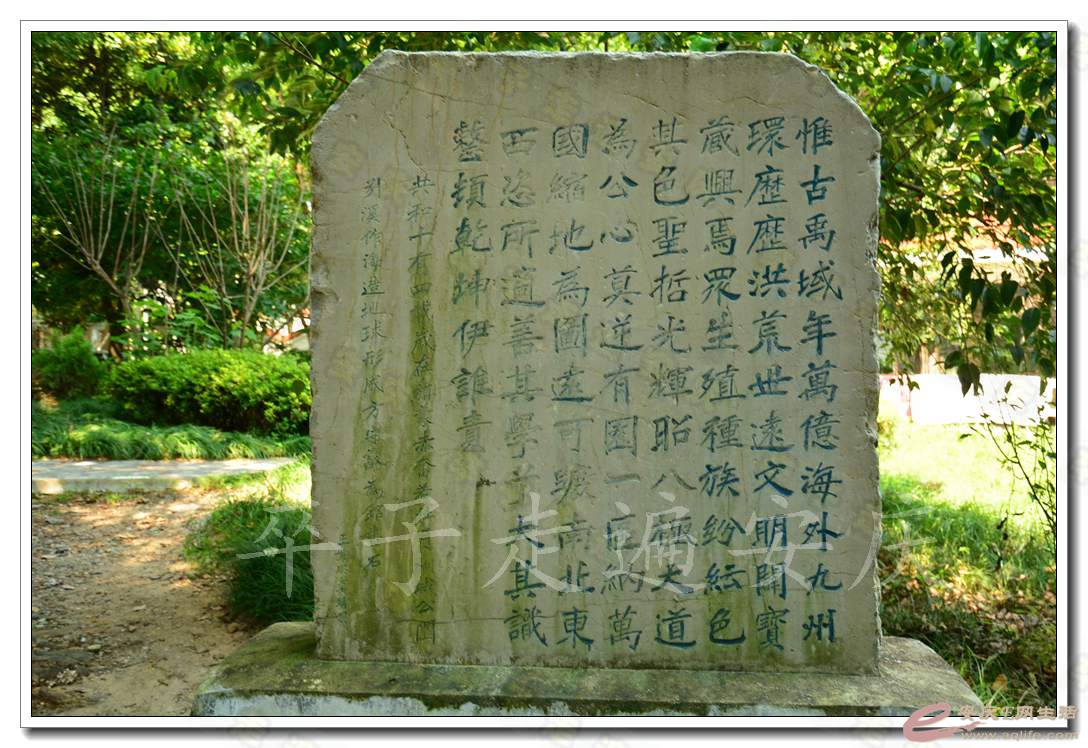 惟古禹域年萬億海外九州
環歷歷洪荒世遠文明開寶
藏興焉眾生殖種族紛紜色
其色聖哲光輝昭八極大道
為公心莫逆有園一區納萬
國縮地為圖遠可蹠南北東
西恣所適善其學子大其識
藝頻乾坤伊誰責
共和十有四
劉溪作海造地球形成方
卒子走遍安庆
安庆e网生活
www.aqlife.com